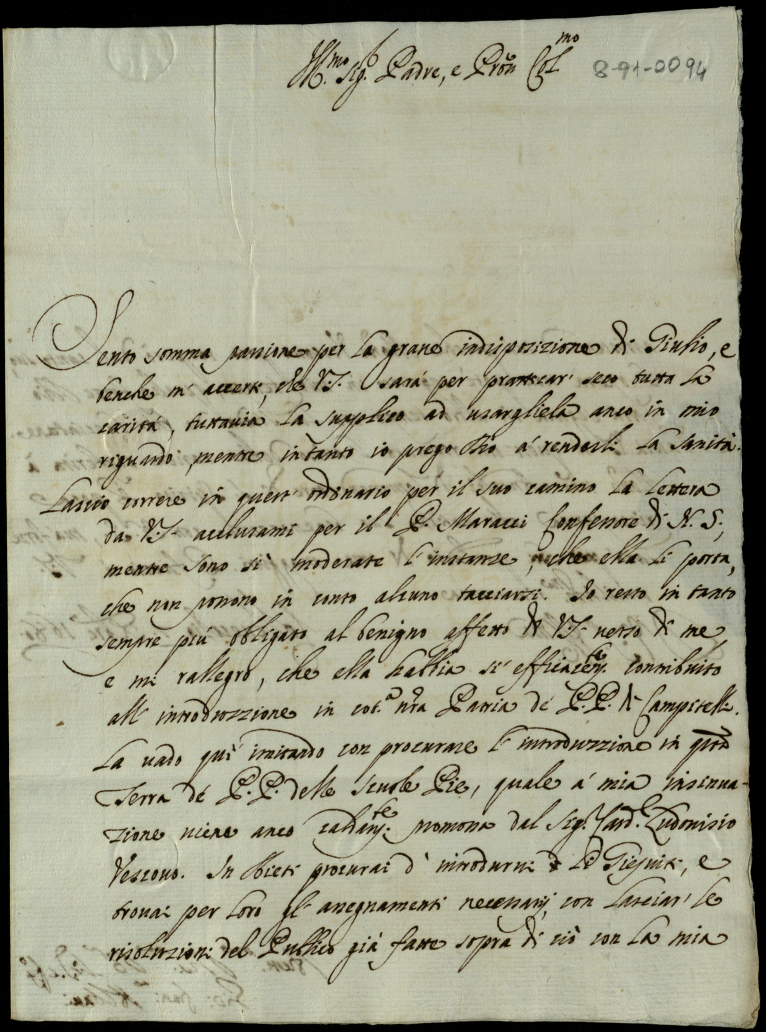 Ill.mo Sig. Padre, e Pron Col.mo
8-91-0094
Sento somma passione per la grave indisposizione di Giulio, e
benche m'accerti, che V.S. sarà per pratticar seco tutta la
carità, tuttavia la supplico ad usargliela anco in mio
riguardo, mentre intanto io prego Dio à renderli la sanità.
Lascio correre in quest'ordinario per il suo camino la lettera
da V.S. acclusami per il P. Maracci Confessore di N.S.,
mentre sono sì moderate l'instanze, che ella li porta,
che non ponono in conto alcuno tacciarsi. Io resto in tanto
sempre più obligato al benigno affetto di V.S. verso di me,
e mi rallegro, che ella habbia sì efficacem.te contribuito
all'introduzzione in cot.a nra Patria de P.P. di Campitelli.
La vado quì imitando con procurare l'introduzzione in questa
Terra de P.P. delle Scuole Pie, quale à mia insinua-
zione viene anco caldam.te promossa dal Sig. Card.le Ludovisio
Vescovo. In Rieti procurai d'introdurvi li Giesuiti, e
trovai per loro gl'assegnamenti necessarij, con lasciar le
risoluzioni del Publico già fatte sopra di ciò con la mia